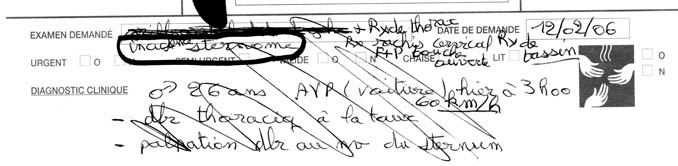 EXAMEN DEMANDÉ + Rx de thorax DATE DE DEMANDE 12/02/06
sternome Rx rachis cervical Rx de
F+P bouche bassin
URGENT O N SEMI URGENT VALIDE O N CHAISE ouverte LIT O
N
DIAGNOSTIC CLINIQUE ♂ 26 ans AVP (voiture) hier à 3h00
60 km/h
- dlr thoraciq à la toux
- palpation dlr au nv du sternum